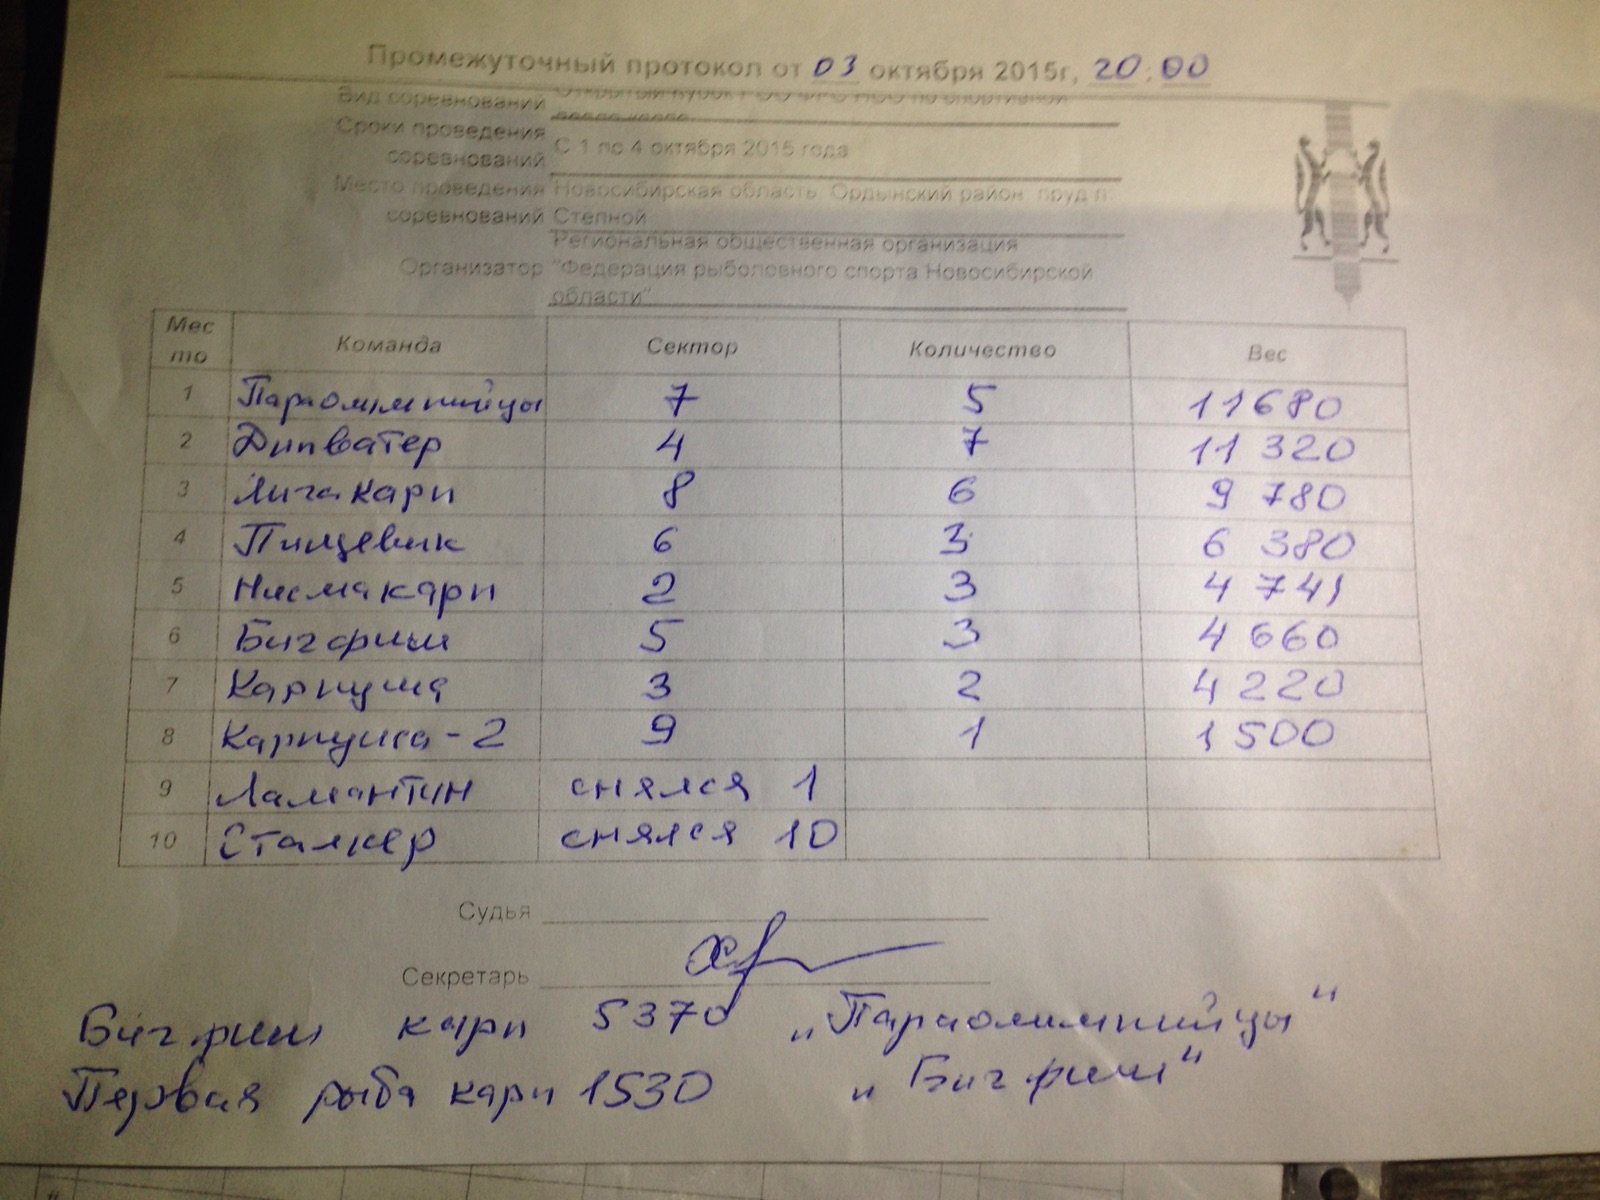 Промежуточный протокол от 03 октября 2015г, 20:00
Вид соревнований Открытый Кубок РОО ФРС НСО по спортивной
ловле карпа
Сроки проведения
соревнований С 1 по 4 октября 2015 года
Место проведения Новосибирская область Ордынский район пруд п.
соревнований Степной
Региональная общественная организация
Организатор "Федерация рыболовного спорта Новосибирской
области"
Место Команда Сектор Количество Вес
1 Параолимпийцы 7 5 11680
2 Дипватер 4 7 11 320
3 Лига карп 8 6 9 780
4 Пищевик 6 3 6 380
5 Нисмакарп 2 3 4 741
6 Бигфиш 5 3 4 660
7 Карпуша 3 2 4 220
8 Карпуша-2 9 1 1 500
9 Ламантин снялся 1
10 Сталкер снялся 10
Судья
Секретарь
Бигфиш карп 5370 „Параолимпийцы"
Первая рыба карп 1530 „Бигфиш"